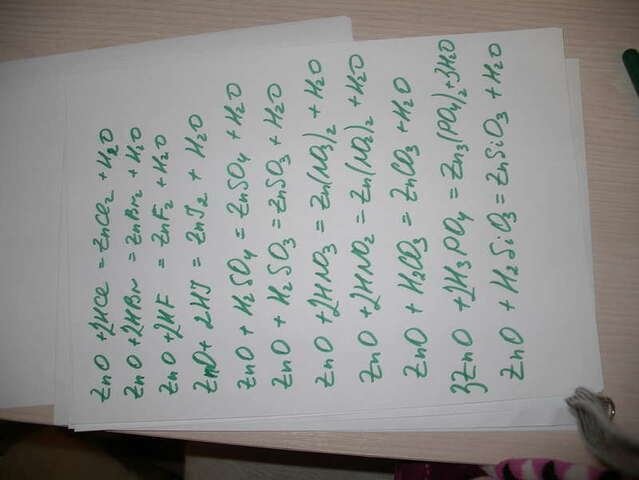 ZnO + 2HCl = ZnCl2 + H2O
ZnO + 2HBr = ZnBr2 + H2O
ZnO + 2HF = ZnF2 + H2O
ZnO + 2HJ = ZnJ2 + H2O
ZnO + H2SO4 = ZnSO4 + H2O
ZnO + H2SO3 = ZnSO3 + H2O
ZnO + 2HNO3 = Zn(NO3)2 + H2O
ZnO + 2HNO2 = Zn(NO2)2 + H2O
ZnO + H2CO3 = ZnCO3 + H2O
3ZnO + 2H3PO4 = Zn3(PO4)2 + 3H2O
ZnO + H2SiO3 = ZnSiO3 + H2O